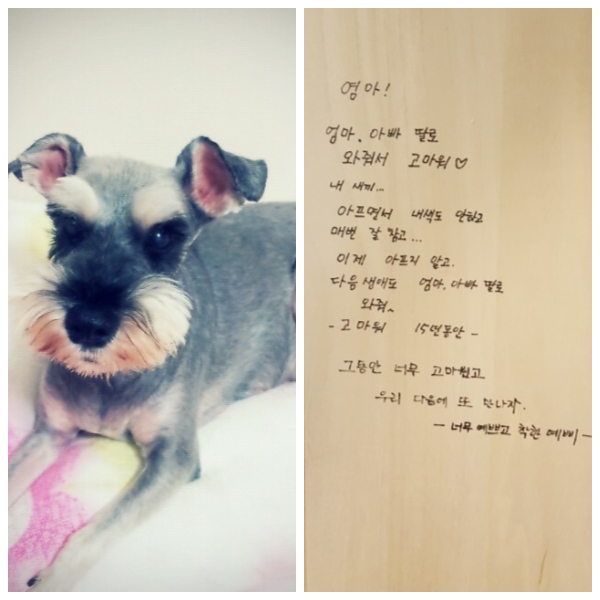 엄마!
엄마, 아빠 딸로
와줘서 고마워♡
내 새끼...
아프면서 내색도 안하고
매번 잘 참고...
이제 아프지 말고.
다음 생애도 엄마, 아빠 딸로
와줘~
- 고마워 15년동안 -
그동안 너무 고마웠고
우리 다음에 또 만나자.
- 너무 예쁘고 착한 예삐 -